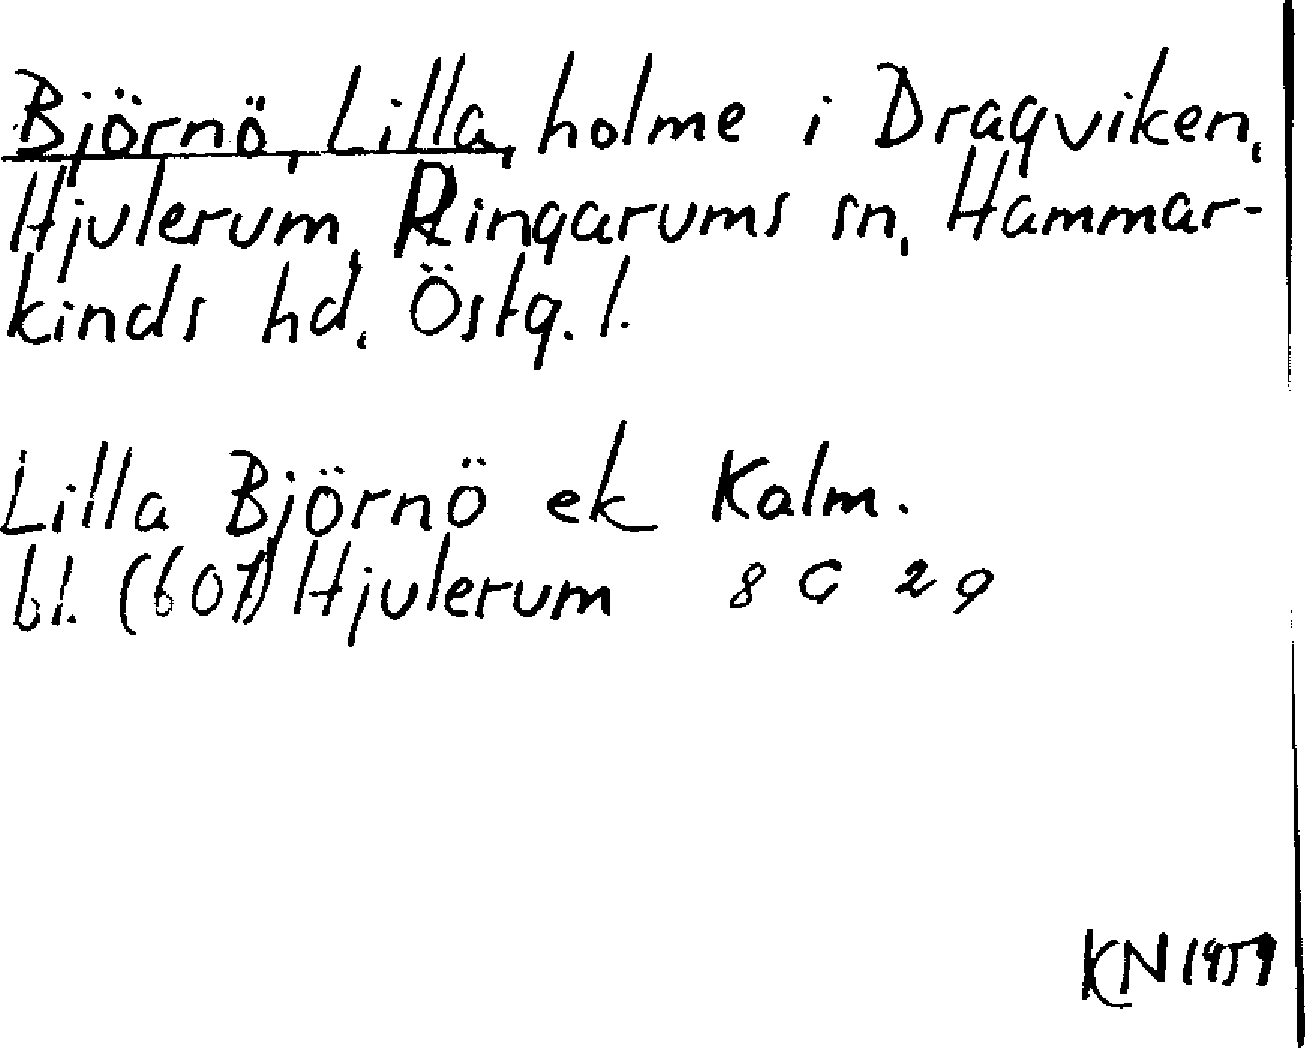 Björnö, Lilla, holme i Dragviken,
Hjulerum, Ringarums sn, Hammar-
kinds hd, Östg. l.
Lilla Björnö ek Kalm.
bl. (601) Hjulerum 8 G 29
KN 1959